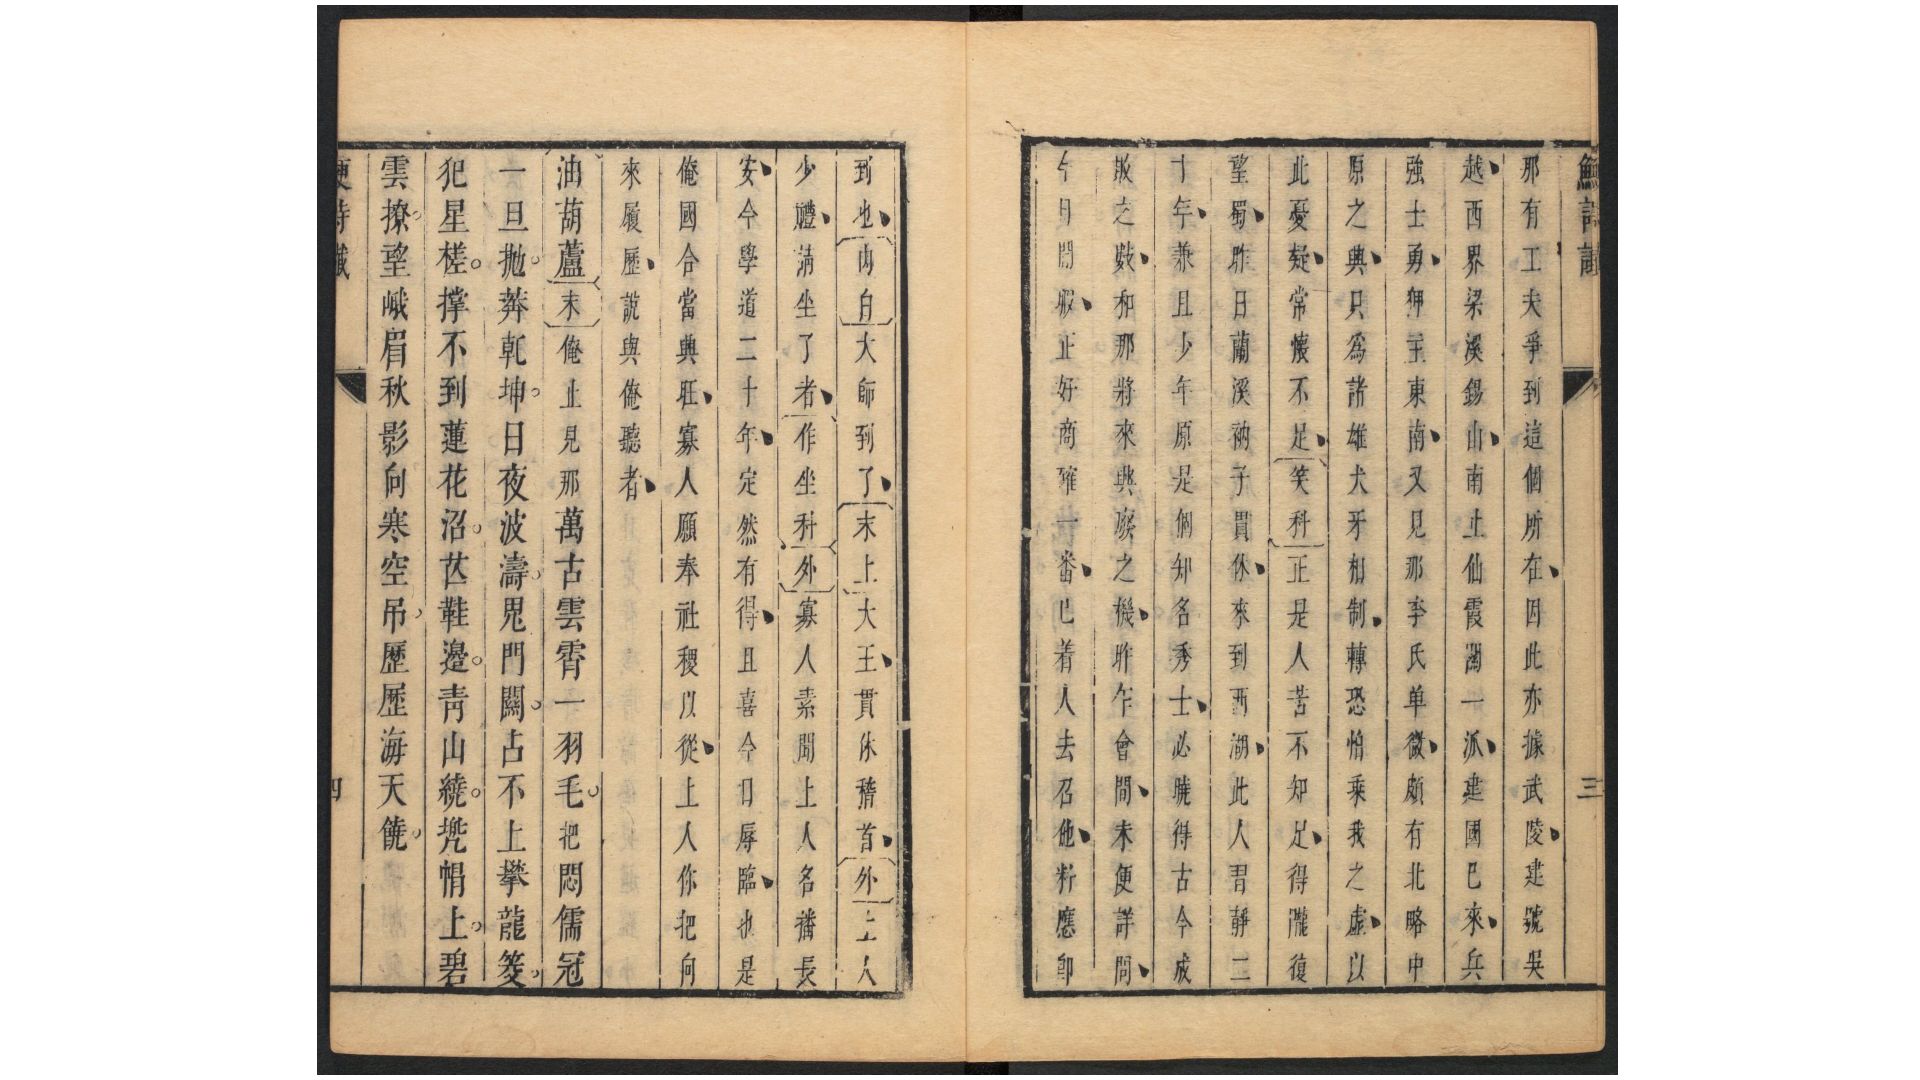 三
那有工夫爭到這個所在因此亦據武陵建號吳
越西界梁溪錫山南止仙霞關一派建國已來兵
強士勇狎主東南又見那李氏单微頗有北略中
原之興只爲諸雄犬牙相制轉恐怕乘我之虛以
此憂疑常懷不足笑科正是人苦不知足得隴復
望蜀昨日蘭溪衲子貫休來到西湖此人胃靜二
十年兼且少年原是個知名秀士必曉得古今成
敗之數和那將來興廢之機昨乍會間未便詳問
今日閒暇正好商確一番已着人去召他料應卽
到也內白大師到了末上大王貫休稽首外上人
少禮請坐了者作坐科外寡人素聞上人名播長
安今學道二十年定然有得且喜今日辱臨也是
俺國合當興旺寡人願奉社稷以從上人你把向
來履歷說與俺聽者
油葫蘆末俺止見那萬古雲霄一羽毛把悶儒冠
一旦拋莽乾坤日夜波濤鬼門關占不上攀龍筊
犯星槎撐不到蓮花沼芒鞋邊靑山繞兠帽上碧
雲撩望峨眉秋影向寒空吊歷歷海天饒
四